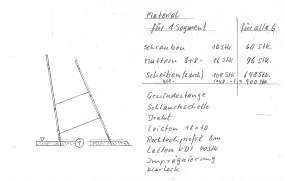 Material
für 1 Segment für alle 6
Schrauben 10 Stk 60 Stk.
Muttern 8+8= 16 Stk 96 Stk.
Scheiben (2fach) 108 Stk 648 Stk.
Gewindestange
Schlauchschelle
Draht
Leisten 18×10
Rechteckprofil 8m
Latten KDI
Imprägnierung
Klarlack
1